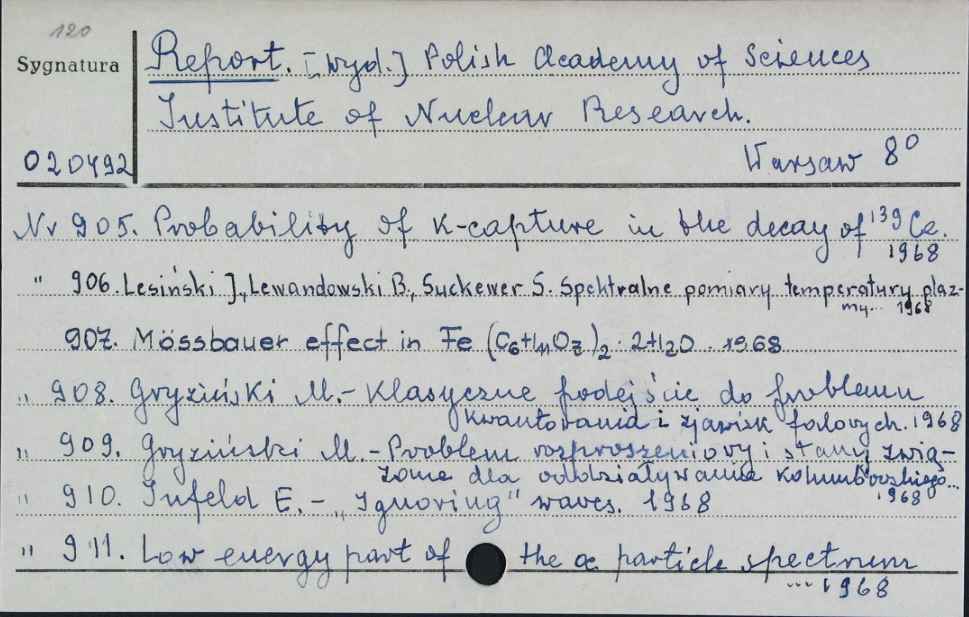 120
Sygnatura
Report. [wyd.] Polish Academy of Sciences
Institute of Nuclear Research.
020492
Warsaw 8°
Nr 905. Probability of K-capture in the decay of ¹³⁹Ce.
1968
" 906. Lesiński J., Lewandowski B., Suckewer S. Spektralne pomiary temperatury plaz-
my... 1968
907. Mössbauer effect in Fe (C₆H₁₁O₇)₂ · 2H₂O . 1968
" 908. Gryziński M. - Klasyczne podejście do problemu
kwantowania i zjawisk falowych. 1968
" 909. Gryziński M. - Problem rozproszeniowy i stany zwią-
zane dla oddziaływania kolumbowskiego...
1968
" 910. Infeld E. - „Ignoring" waves. 1968
" 911. Low energy part of the α particle spectrum
... 1968